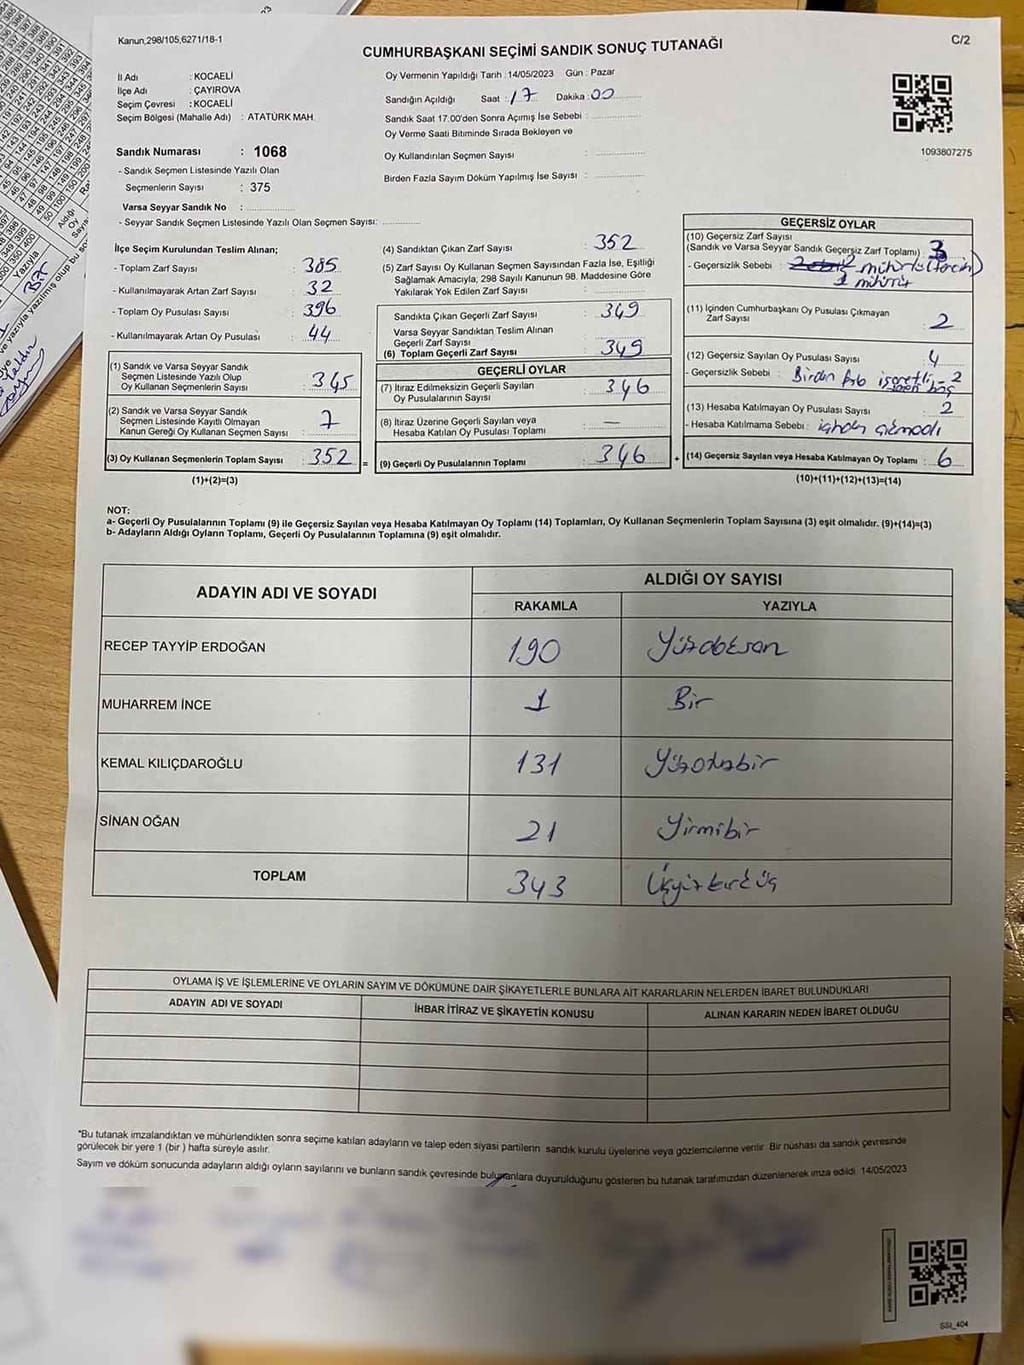 Kanun,298/105,6271/18-1
C/2
CUMHURBAŞKANI SEÇİMİ SANDIK SONUÇ TUTANAĞI
İl Adı : KOCAELİ
İlçe Adı : ÇAYIROVA
Seçim Çevresi : KOCAELİ
Seçim Bölgesi (Mahalle Adı) : ATATÜRK MAH.
Sandık Numarası : 1068
- Sandık Seçmen Listesinde Yazılı Olan
Seçmenlerin Sayısı : 375
Varsa Seyyar Sandık No :
- Seyyar Sandık Seçmen Listesinde Yazılı Olan Seçmen Sayısı:
Oy Vermenin Yapıldığı Tarih :14/05/2023 Gün : Pazar
Sandığın Açıldığı Saat : 17 Dakika : 00
Sandık Saat 17.00'den Sonra Açımış İse Sebebi :
Oy Verme Saati Bitiminde Sırada Bekleyen ve
Oy Kullandırılan Seçmen Sayısı :
Birden Fazla Sayım Döküm Yapılmış İse Sayısı :
1093807275
İlçe Seçim Kurulundan Teslim Alınan;
- Toplam Zarf Sayısı : 385
- Kullanılmayarak Artan Zarf Sayısı : 32
- Toplam Oy Pusulası Sayısı : 396
- Kullanılmayarak Artan Oy Pusulası : 44
(1) Sandık ve Varsa Seyyar Sandık
Seçmen Listesinde Yazılı Olup
Oy Kullanan Seçmenlerin Sayısı : 345
(2) Sandık ve Varsa Seyyar Sandık
Seçmen Listesinde Kayıtlı Olmayan
Kanun Gereği Oy Kullanan Seçmen Sayısı : 7
(3) Oy Kullanan Seçmenlerin Toplam Sayısı : 352 =
(1)+(2)=(3)
(4) Sandıktan Çıkan Zarf Sayısı : 352
(5) Zarf Sayısı Oy Kullanan Seçmen Sayısından Fazla İse, Eşitliği
Sağlamak Amacıyla, 298 Sayılı Kanunun 98. Maddesine Göre
Yakılarak Yok Edilen Zarf Sayısı :
Sandıkta Çıkan Geçerli Zarf Sayısı : 349
Varsa Seyyar Sandıktan Teslim Alınan
Geçerli Zarf Sayısı :
(6) Toplam Geçerli Zarf Sayısı : 349
GEÇERLİ OYLAR
(7) İtiraz Edilmeksizin Geçerli Sayılan
Oy Pusulalarının Sayısı : 346
(8) İtiraz Üzerine Geçerli Sayılan veya
Hesaba Katılan Oy Pusulası Toplamı : —
(9) Geçerli Oy Pusulalarının Toplamı : 346 +
GEÇERSİZ OYLAR
(10) Geçersiz Zarf Sayısı
(Sandık ve Varsa Seyyar Sandık Geçersiz Zarf Toplamı) : 3
- Geçersizlik Sebebi :
(11) İçinden Cumhurbaşkanı Oy Pusulası Çıkmayan
Zarf Sayısı 2
(12) Geçersiz Sayılan Oy Pusulası Sayısı : 4
- Geçersizlik Sebebi : Birden işaretli - 2
boş
(13) Hesaba Katılmayan Oy Pusulası Sayısı : 2
- Hesaba Katılmama Sebebi : içinden çıkmadı
(14) Geçersiz Sayılan veya Hesaba Katılmayan Oy Toplamı : 6
(10)+(11)+(12)+(13)=(14)
NOT:
a- Geçerli Oy Pusulalarının Toplamı (9) ile Geçersiz Sayılan veya Hesaba Katılmayan Oy Toplamı (14) Toplamları, Oy Kullanan Seçmenlerin Toplam Sayısına (3) eşit olmalıdır. (9)+(14)=(3)
b- Adayların Aldığı Oyların Toplamı, Geçerli Oy Pusulalarının Toplamına (9) eşit olmalıdır.
ADAYIN ADI VE SOYADI
ALDIĞI OY SAYISI
RAKAMLA YAZIYLA
RECEP TAYYİP ERDOĞAN 190 Yüzdoksan
MUHARREM İNCE 1 Bir
KEMAL KILIÇDAROĞLU 131 Yüzotuzbir
SİNAN OĞAN 21 Yirmibir
TOPLAM 343 Üçyüzkırküç
OYLAMA İŞ VE İŞLEMLERİNE VE OYLARIN SAYIM VE DÖKÜMÜNE DAİR ŞİKAYETLERLE BUNLARA AİT KARARLARIN NELERDEN İBARET BULUNDUKLARI
ADAYIN ADI VE SOYADI İHBAR İTİRAZ VE ŞİKAYETİN KONUSU ALINAN KARARIN NEDEN İBARET OLDUĞU
*Bu tutanak imzalandıktan ve mühürlendikten sonra seçime katılan adayların ve talep eden siyasi partilerin sandık kurulu üyelerine veya gözlemcilerine verilir. Bir nüshası da sandık çevresinde
görülecek bir yere 1 (bir ) hafta süreyle asılır.
Sayım ve döküm sonucunda adayların aldığı oyların sayılarını ve bunların sandık çevresinde bulunanlara duyurulduğunu gösteren bu tutanak tarafımızdan düzenlenerek imza edildi. 14/05/2023
SSİ_404